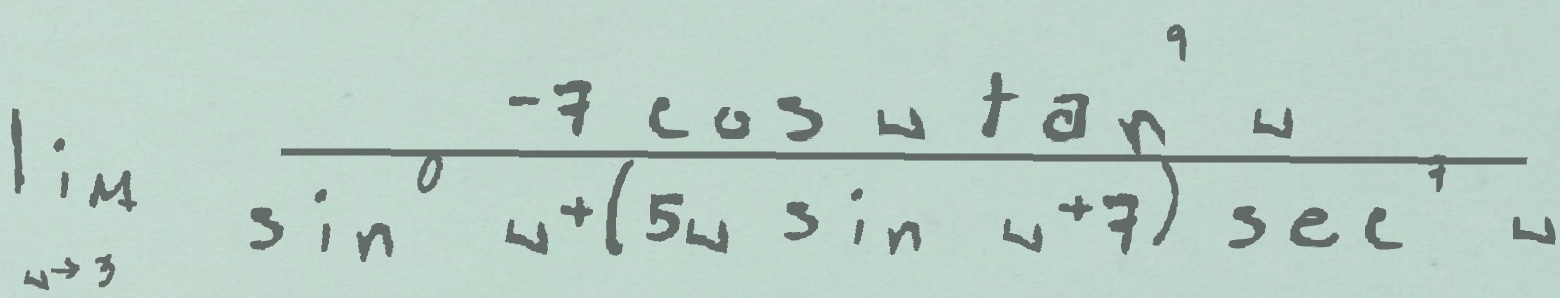 \lim_{u \to 3} \frac{-7 \cos u \tan^{9} u}{\sin^{0} u + (5u \sin u + 7) \sec^{7} u}